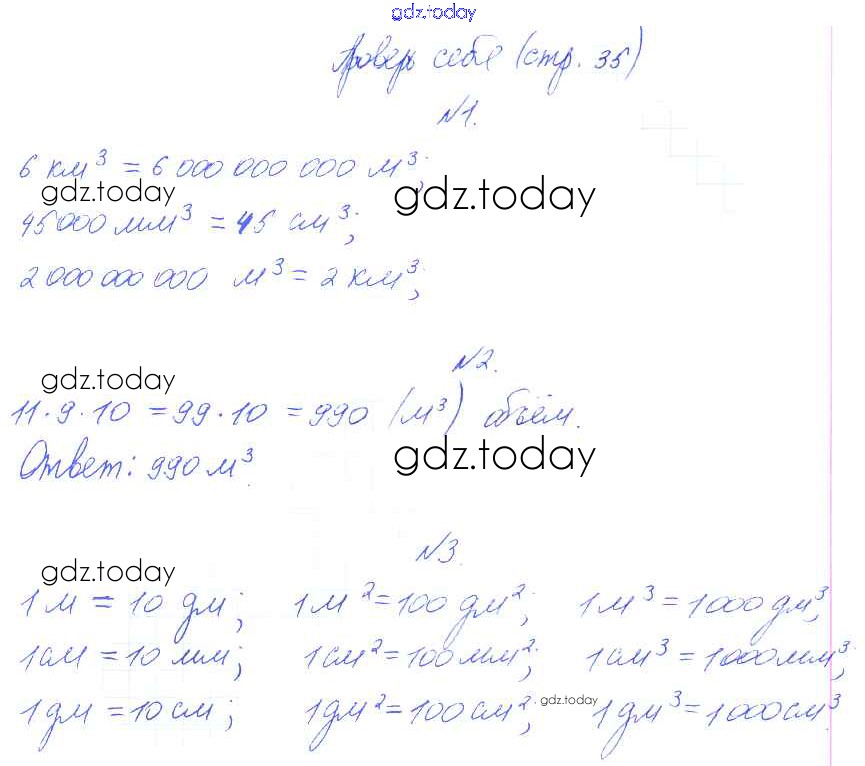 gdz.today
Проверь себя (стр. 35)
№1.
6 км³ = 6 000 000 000 м³;
gdz.today
gdz.today
45000 мм³ = 45 см³;
2 000 000 000 м³ = 2 км³;
№2.
gdz.today
11·9·10 = 99·10 = 990 (м³) объём.
gdz.today
Ответ: 990 м³.
№3.
gdz.today
1 м = 10 дм; 1 м² = 100 дм²; 1 м³ = 1000 дм³;
1 см = 10 мм; 1 см² = 100 мм²; 1 см³ = 1000 мм³;
gdz.today
1 дм = 10 см; 1 дм² = 100 см²; 1 дм³ = 1000 см³.